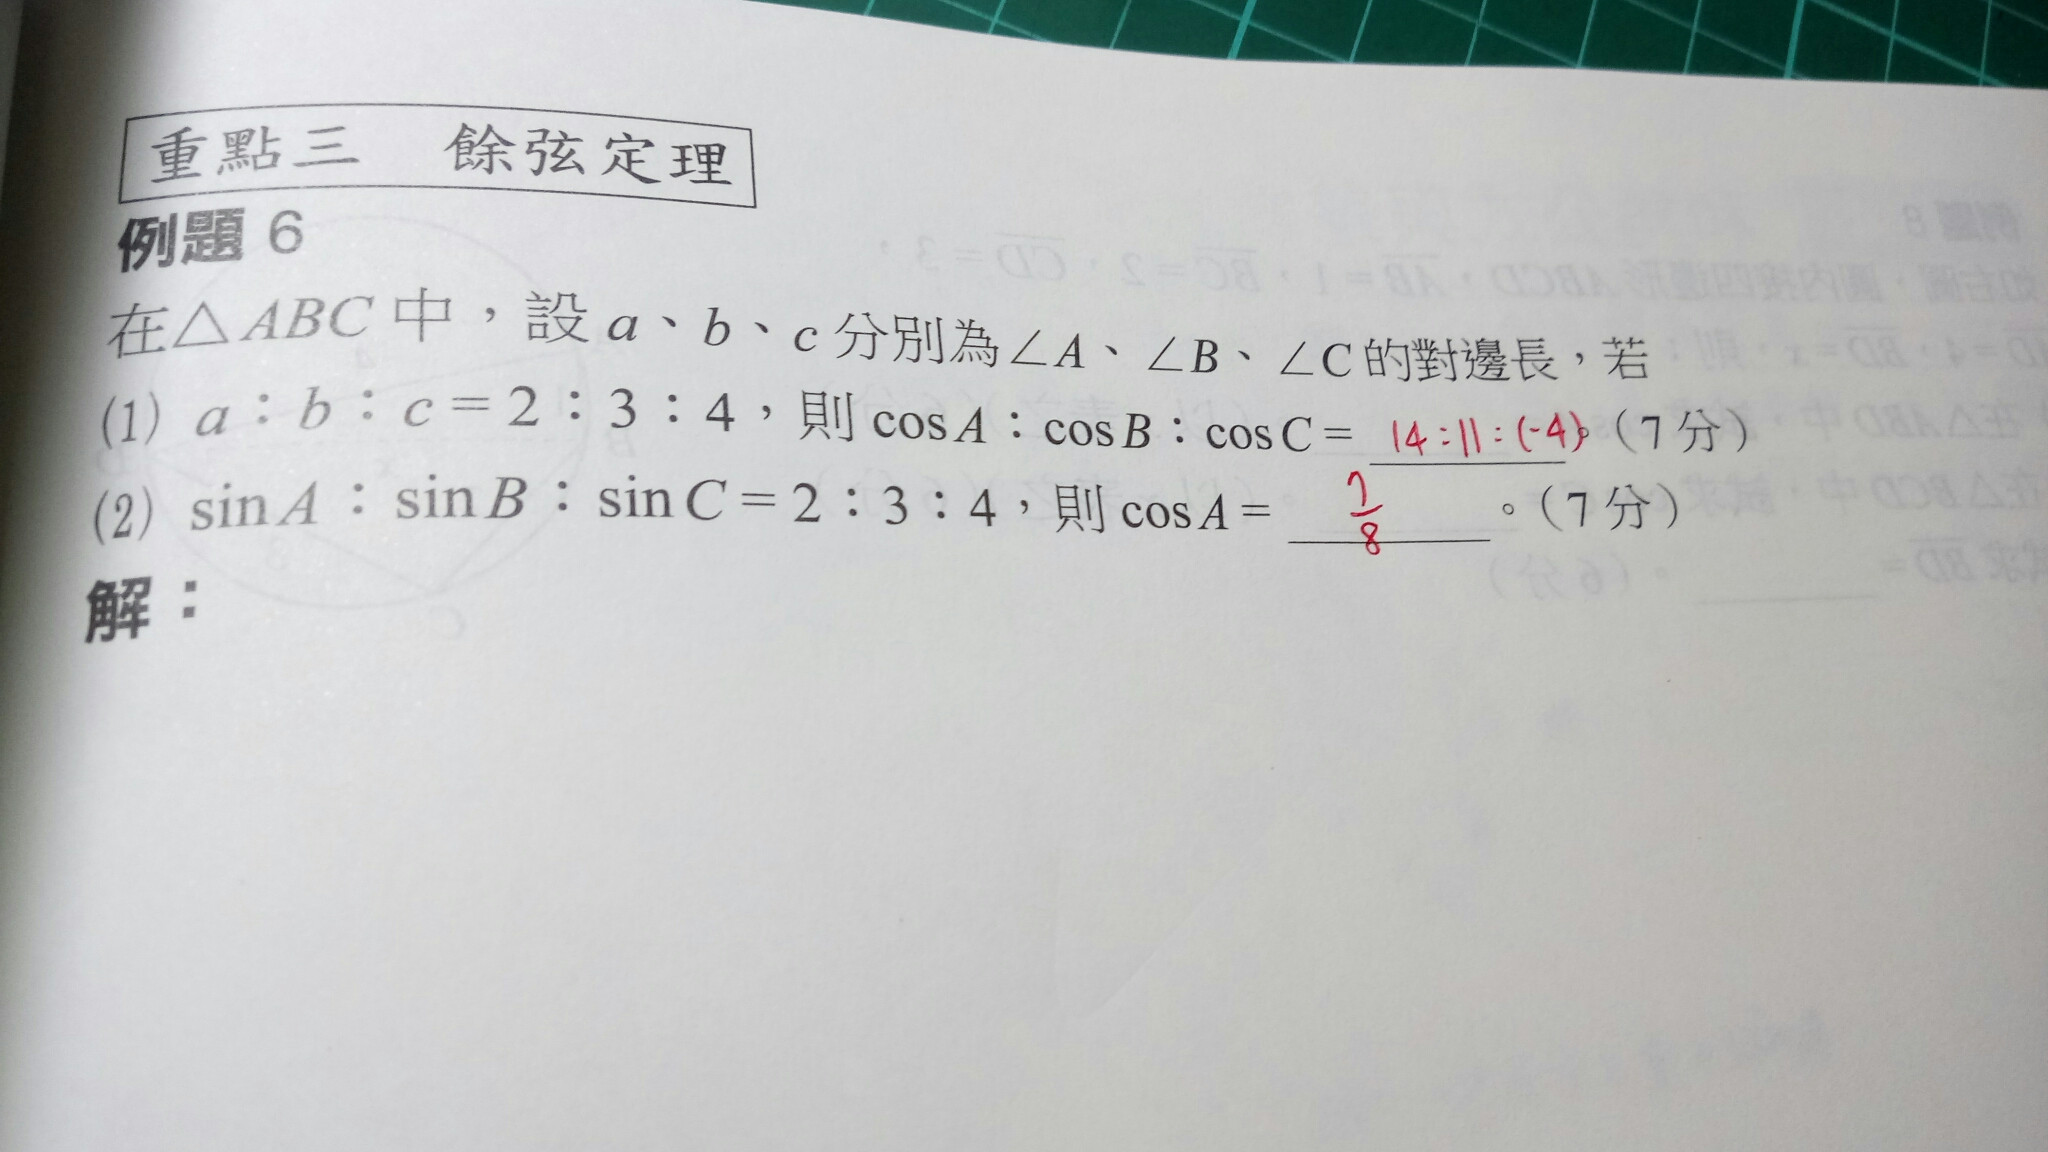 重點三 餘弦定理
例題 6
在△ABC 中，設 a、b、c 分別為∠A、∠B、∠C 的對邊長，若
(1) a：b：c＝2：3：4，則 cosA：cosB：cosC＝ 14：11：(-4)。（7 分）
(2) sinA：sinB：sinC＝2：3：4，則 cosA＝ 7/8 。（7 分）
解：